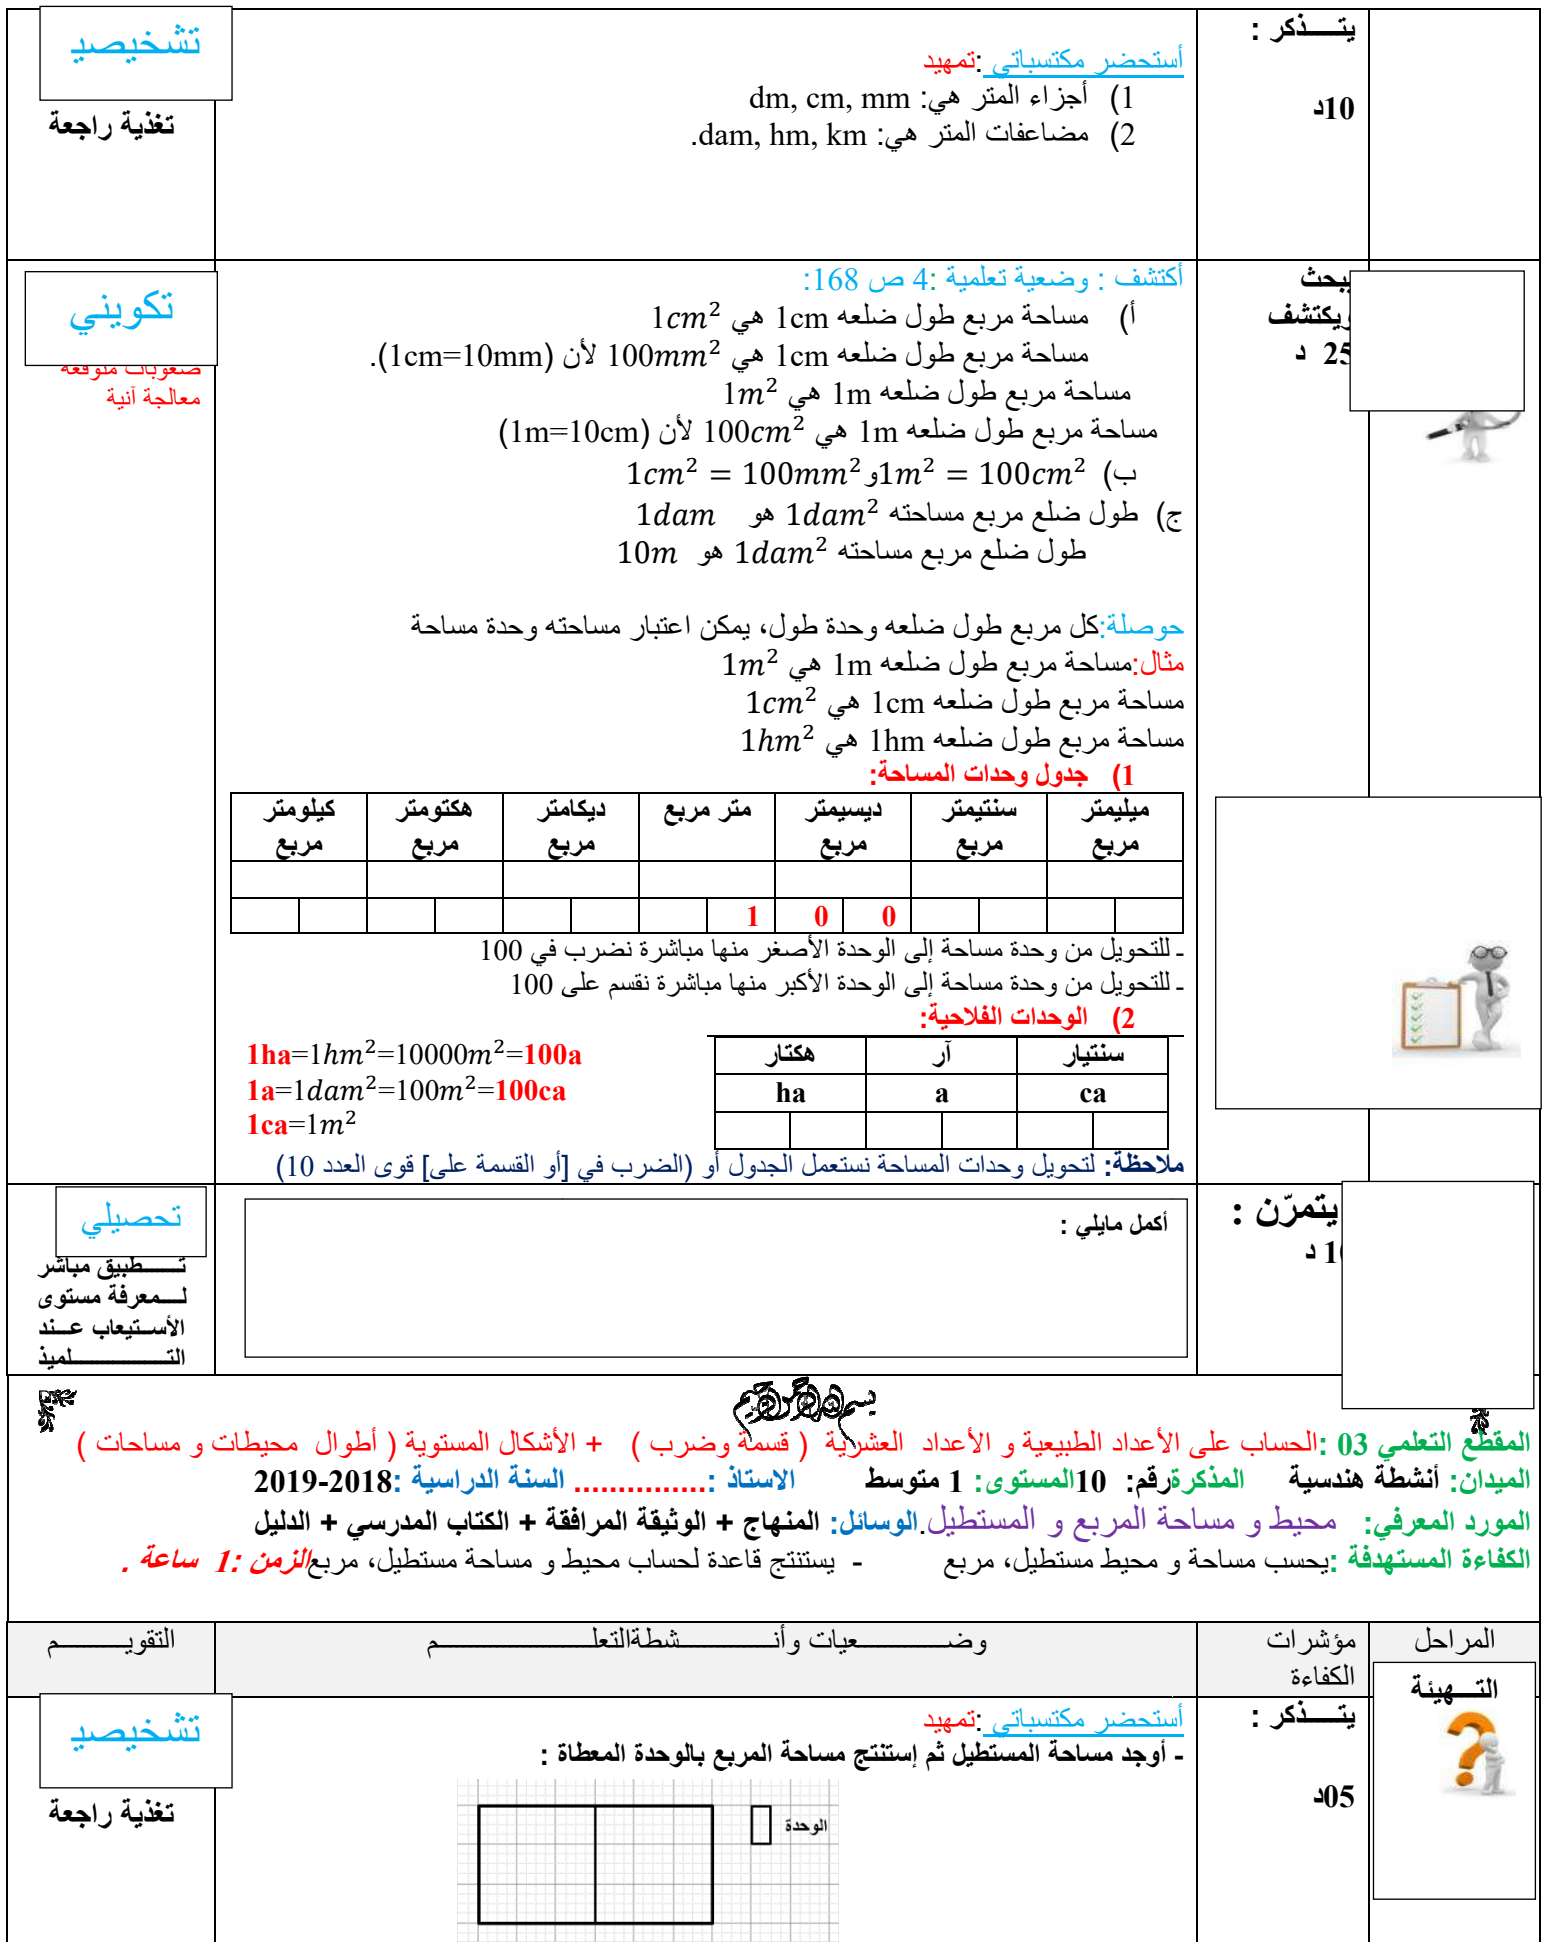 يتـــذكر :
10د
أستحضر مكتسباتي :تمهيد
1) أجزاء المتر هي: dm, cm, mm
2) مضاعفات المتر هي: dam, hm, km.
تشخيصي
تغذية راجعة
يبحث
ويكتشف
25 د
أكتشف : وضعية تعلمية :4 ص 168:
أ) مساحة مربع طول ضلعه 1cm هي 1cm²
مساحة مربع طول ضلعه 1cm هي 100mm² لأن (1cm=10mm).
مساحة مربع طول ضلعه 1m هي 1m²
مساحة مربع طول ضلعه 1m هي 100cm² لأن (1m=10cm)
ب) 1m² = 100cm² و 1cm² = 100mm²
ج) طول ضلع مربع مساحته 1dam² هو 1dam
طول ضلع مربع مساحته 1dam² هو 10m
حوصلة:كل مربع طول ضلعه وحدة طول، يمكن اعتبار مساحته وحدة مساحة
مثال:مساحة مربع طول ضلعه 1m هي 1m²
مساحة مربع طول ضلعه 1cm هي 1cm²
مساحة مربع طول ضلعه 1hm هي 1hm²
1) جدول وحدات المساحة:
ميليمتر مربع سنتيمتر مربع ديسيمتر مربع متر مربع ديكامتر مربع هكتومتر مربع كيلومتر مربع
1 0 0
ـ للتحويل من وحدة مساحة إلى الوحدة الأصغر منها مباشرة نضرب في 100
ـ للتحويل من وحدة مساحة إلى الوحدة الأكبر منها مباشرة نقسم على 100
2) الوحدات الفلاحية:
سنتيار آر هكتار
ca a ha
1ha=1hm²=10000m²=100a
1a=1dam²=100m²=100ca
1ca=1m²
ملاحظة: لتحويل وحدات المساحة نستعمل الجدول أو (الضرب في [أو القسمة على] قوى العدد 10)
تكويني
صعوبات متوقعة
معالجة آنية
يتمرّن :
أكمل مايلي :
تحصيلي
تـــطبيق مباشر
لـــمعرفة مستوى
الأستيعاب عـــند
التـــــــلميذ
بسم الله الرحمن الرحيم
المقطع التعلمي 03 :الحساب على الأعداد الطبيعية و الأعداد العشرية ( قسمة وضرب ) + الأشكال المستوية ( أطوال محيطات و مساحات )
الميدان: أنشطة هندسية المذكرةرقم: 10المستوى: 1 متوسط الاستاذ :............... السنة الدراسية :2018-2019
المورد المعرفي: محيط و مساحة المربع و المستطيل.الوسائل: المنهاج + الوثيقة المرافقة + الكتاب المدرسي + الدليل
الكفاءة المستهدفة :يحسب مساحة و محيط مستطيل، مربع - يستنتج قاعدة لحساب محيط و مساحة مستطيل، مربعالزمن :1 ساعة .
المراحل
مؤشرات
الكفاءة
وضـــــعيات وأنـــــشطةالتعلـــــم
التقويـــــم
التـــهيئة
يتـــذكر :
05د
أستحضر مكتسباتي :تمهيد
- أوجد مساحة المستطيل ثم إستنتج مساحة المربع بالوحدة المعطاة :
الوحدة
تشخيصي
تغذية راجعة